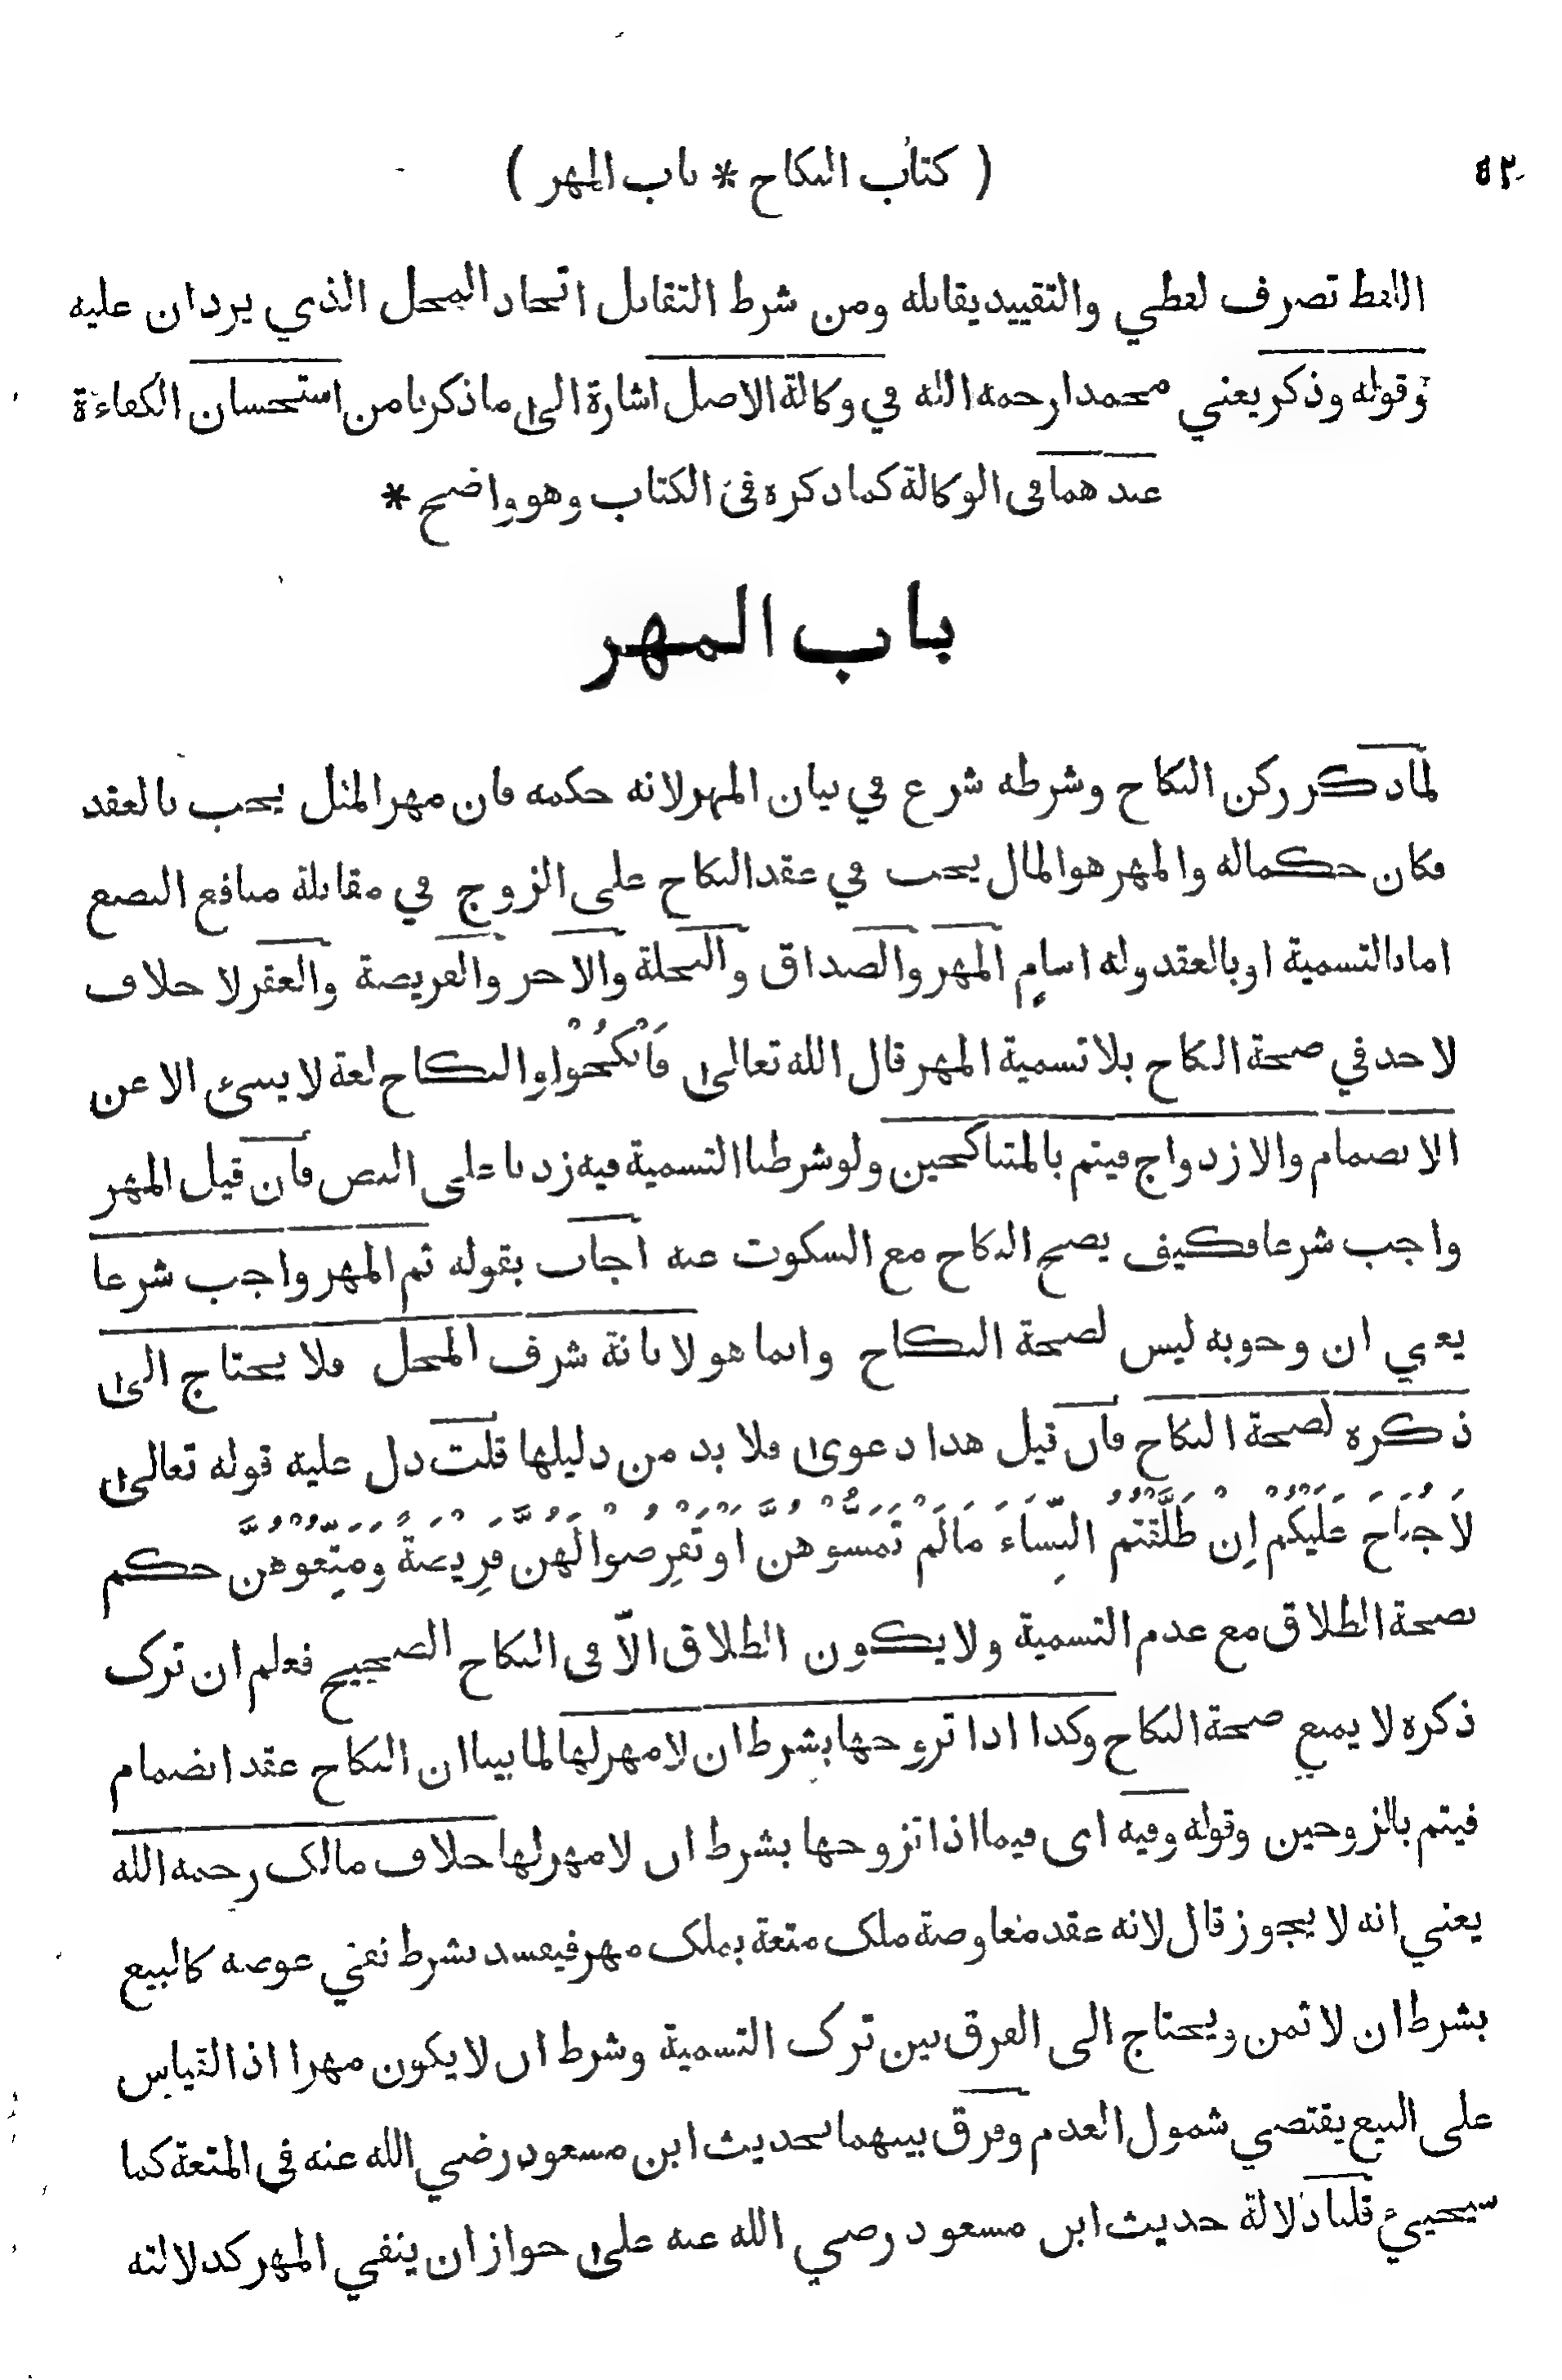 ٥٢
( كتاب النكاح * باب المهر )
اللفظ تصرف لفظي والتقييد يقابله ومن شرط التقابل اتحاد المحل الذي يردان عليه
وقوله وذكر يعني محمدا رحمه الله في وكالة الاصل اشارة الى ما ذكرنا من استحسان الكفاءة
عندهما في الوكالة كما ذكره في الكتاب وهو واضح *
باب المهر
لما ذكر ركن النكاح وشرطه شرع في بيان المهر لانه حكمه فان مهر المثل يجب بالعقد
فكان حكما له والمهر هو المال يجب في عقد النكاح على الزوج في مقابلة منافع البضع
اما بالتسمية او بالعقد وله اسام المهر والصداق والنحلة والاجر والفريضة والعقر لا خلاف
لاحد في صحة النكاح بلا تسمية المهر قال الله تعالى فَانْكِحُوا والنكاح لغة لا ينبئ الا عن
الانضمام والازدواج فيتم بالمتناكحين ولو شرطنا التسمية فيه زدنا على النص فان قيل المهر
واجب شرعا فكيف يصح النكاح مع السكوت عنه اجاب بقوله ثم المهر واجب شرعا
يعني ان وجوبه ليس لصحة النكاح وانما هو لابانة شرف المحل فلا يحتاج الى
ذكره لصحة النكاح فان قيل هذا دعوى فلا بد من دليلها قلت دل عليه قوله تعالى
لَا جُنَاحَ عَلَيْكُمْ اِنْ طَلَّقْتُمُ النِّسَاءَ مَا لَمْ تَمَسُّوهُنَّ اَوْ تَفْرِضُوا لَهُنَّ فَرِيضَةً وَمَتِّعُوهُنَّ حكم
بصحة الطلاق مع عدم التسمية ولا يكون الطلاق الّا في النكاح الصحيح فعلم ان ترك
ذكره لا يمنع صحة النكاح وكذا اذا تزوجها بشرط ان لا مهر لها لما بينا ان النكاح عقد انضمام
فيتم بالزوجين وقوله وفيه اى فيما اذا تزوجها بشرط ان لا مهر لها خلاف مالك رحمه الله
يعني انه لا يجوز قال لانه عقد معاوضة ملك متعة بملك مهر فيفسد بشرط نفي عوضه كالبيع
بشرط ان لا ثمن ويحتاج الى الفرق بين ترك التسمية وشرط ان لا يكون مهرا اذ القياس
على البيع يقتضي شمول العدم وفرق بينهما بحديث ابن مسعود رضي الله عنه في المتعة كما
سيجيئ قلنا دلالة حديث ابن مسعود رضي الله عنه على جواز ان ينفي المهر كدلالته